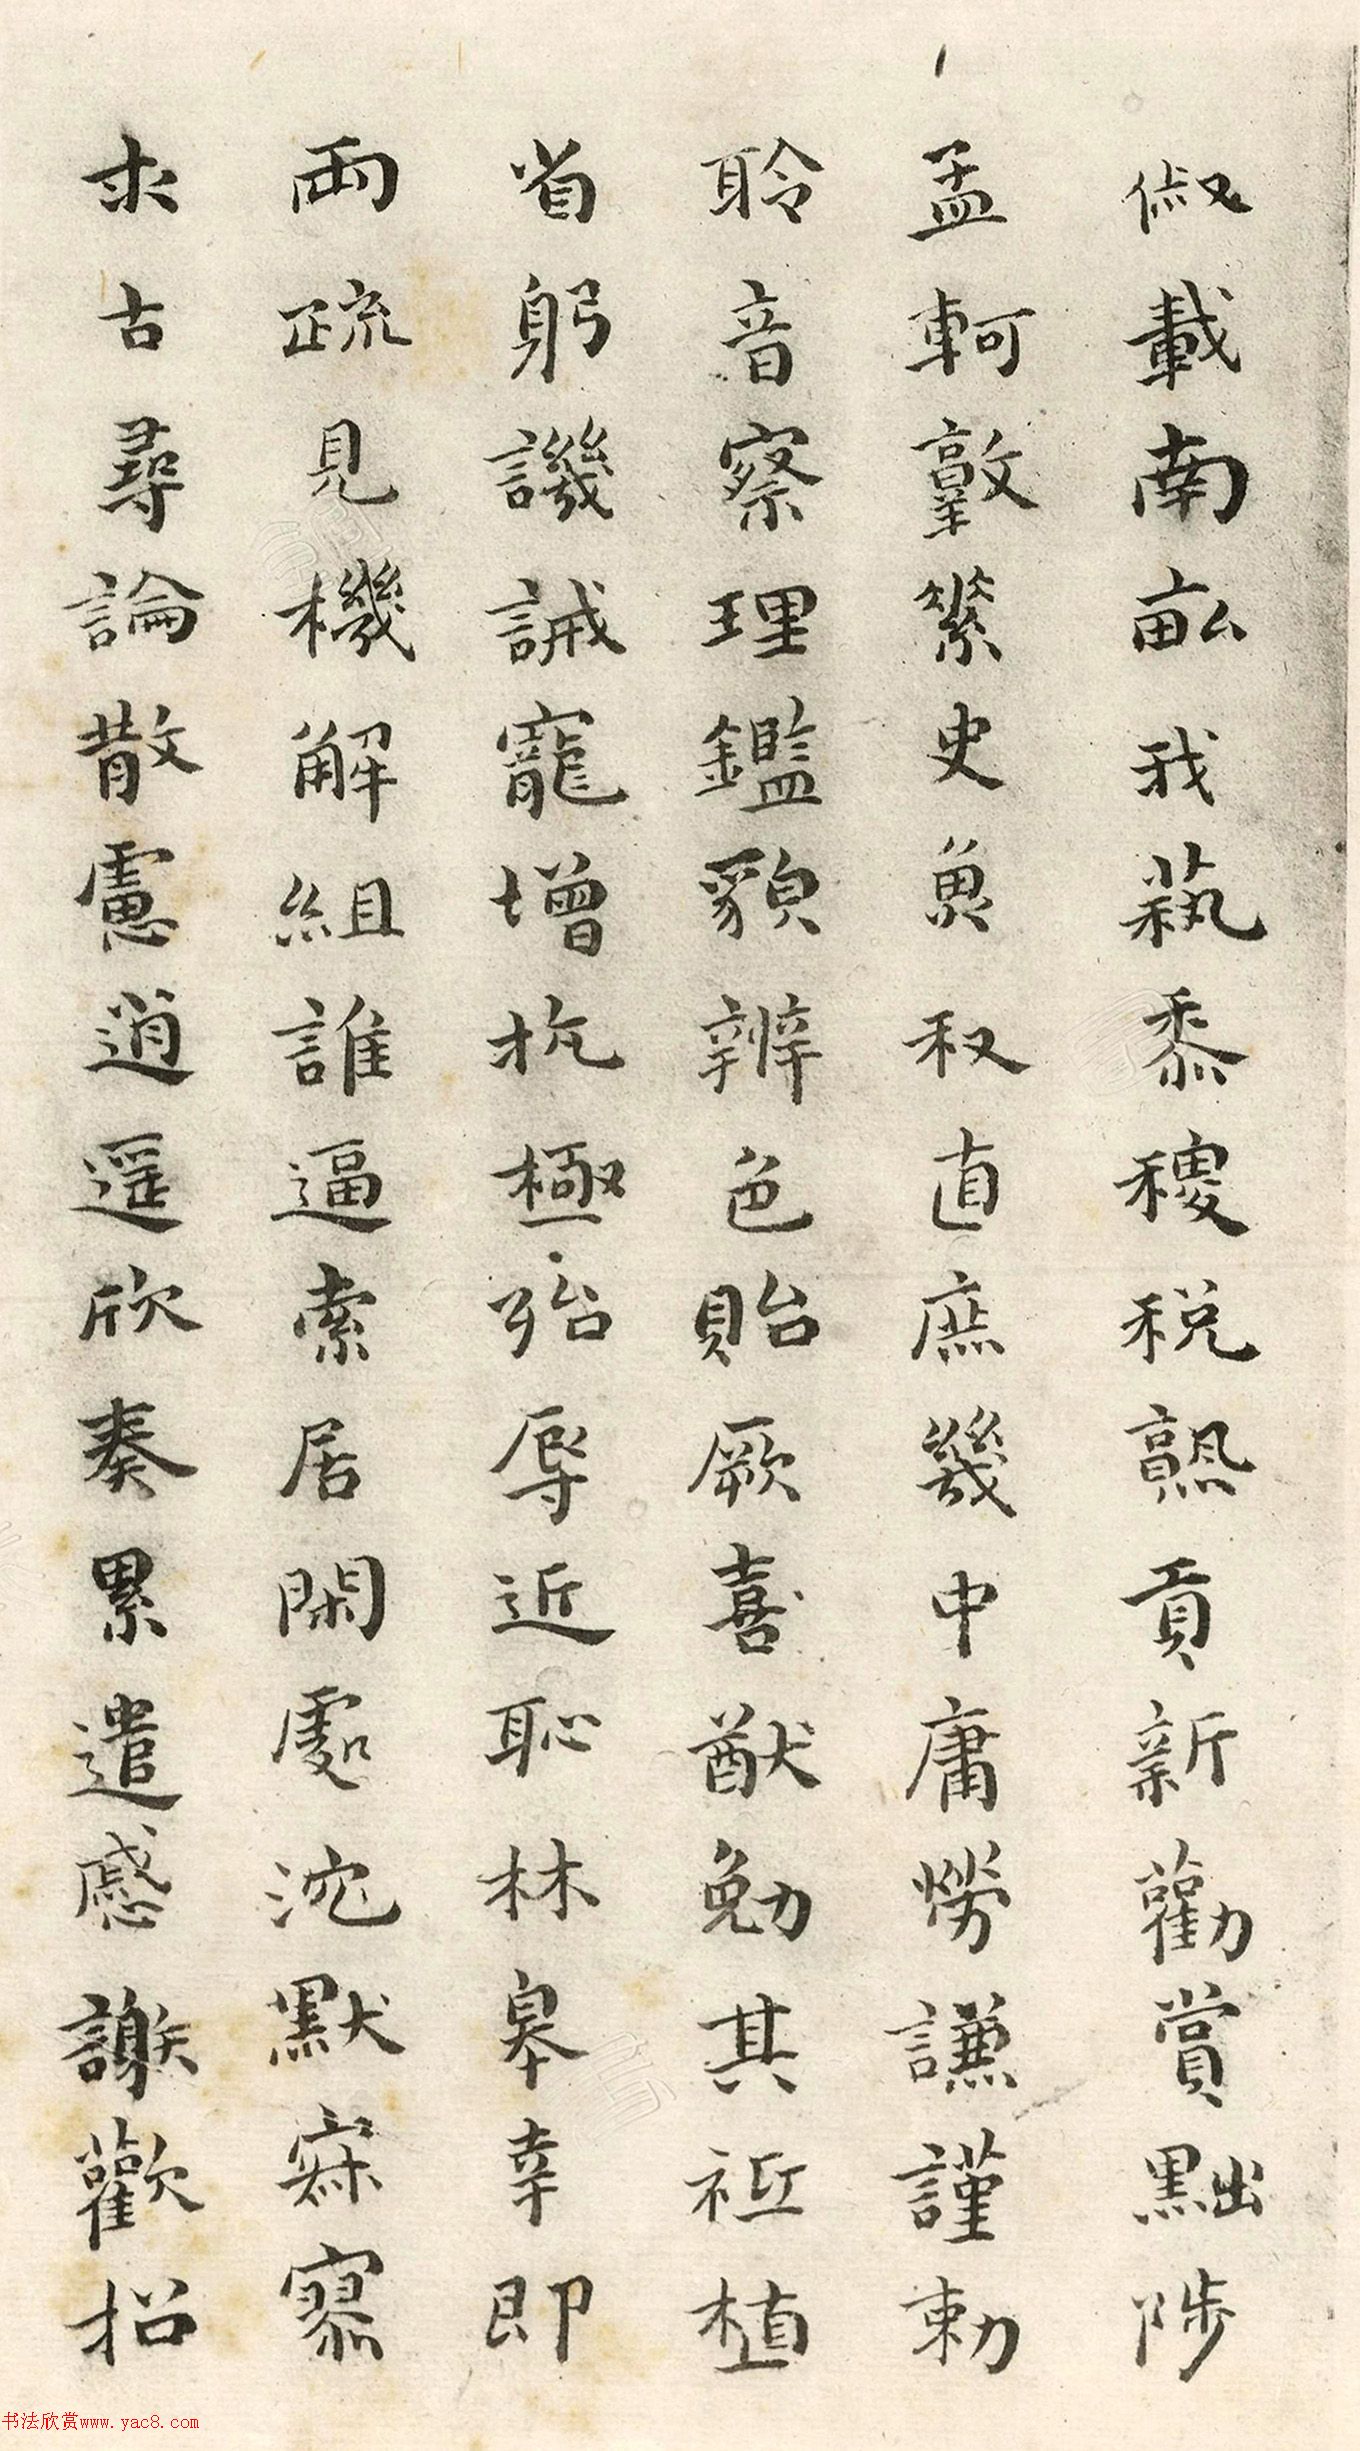 俶載南畝我藝黍稷稅熟貢新勸賞黜陟
孟軻敦素史魚秉直庶幾中庸勞謙謹敕
聆音察理鑑貌辨色貽厥嘉猷勉其祗植
省躬譏誡寵增抗極殆辱近恥林皋幸即
兩疏見機解組誰逼索居閑處沈默寂寥
求古尋論散慮逍遙欣奏累遣慼謝歡招
书法欣赏www.yac8.com